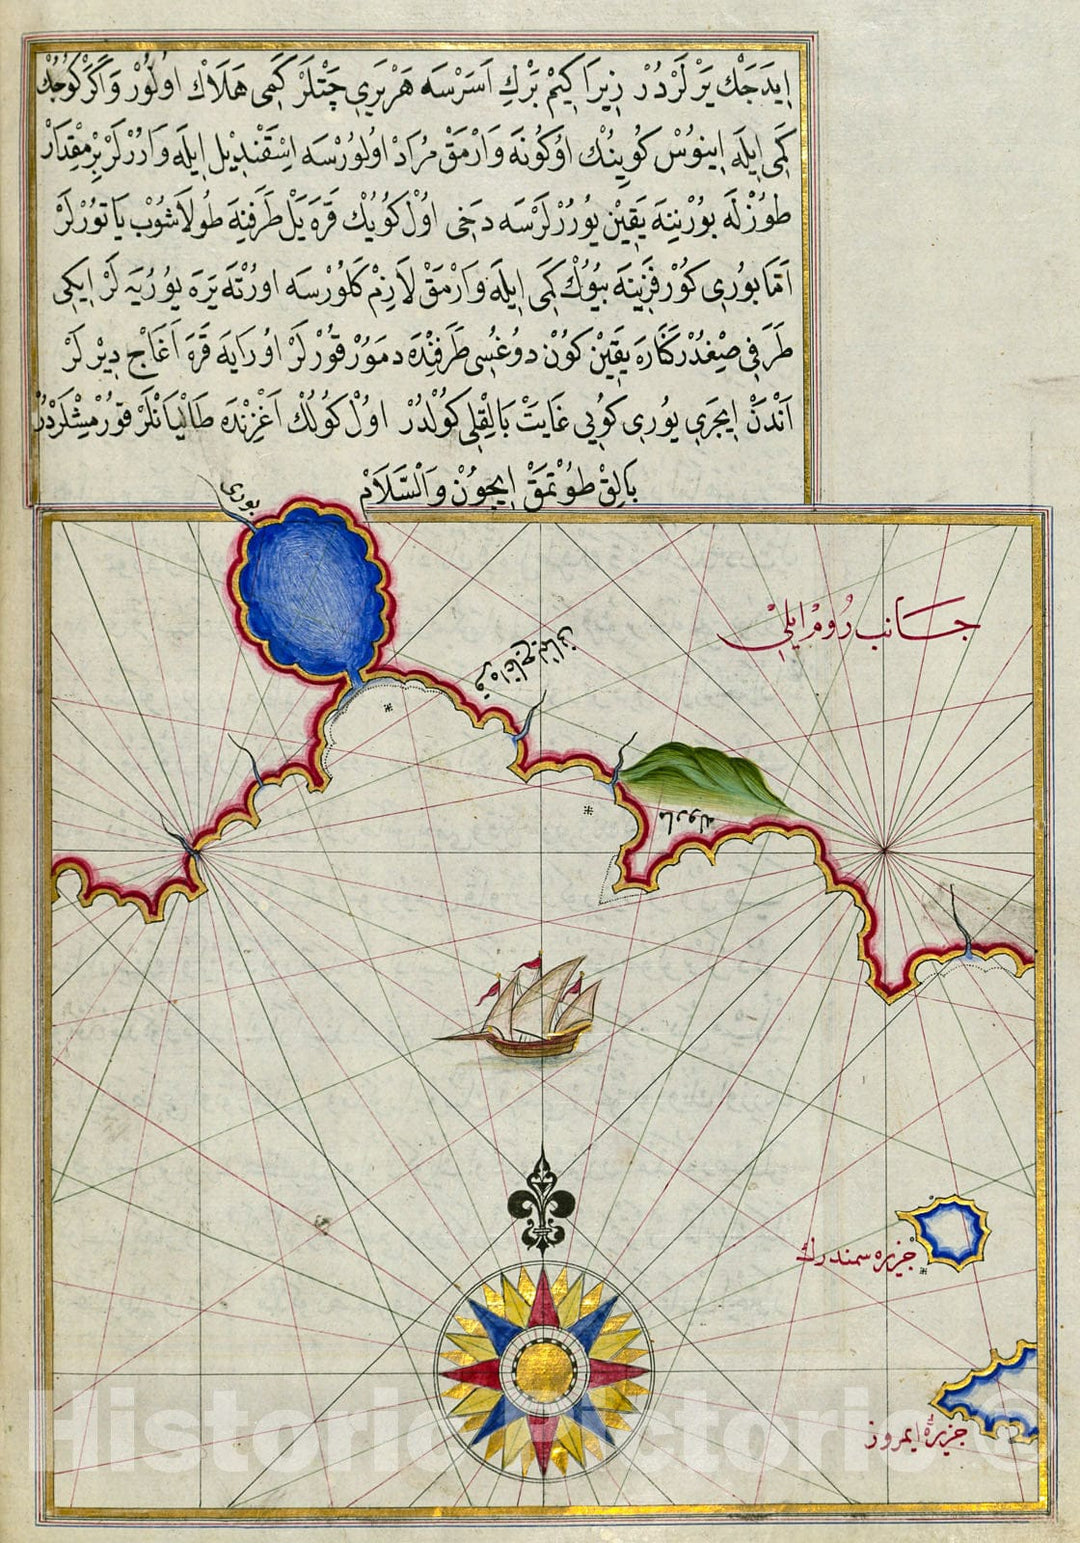 ايدجك يرلردر زيرا كيم برك اسرسه هر بري چتلر كمى هلاك اولور واكر كوجك
كمى ايله اينوس كوينك اوكونه وارمق مراد اولورسه اسقنديل ايله واررلر بر مقدار
طوزله بورنينه يقين يوررلرسه دخى اول كويك قره يل طرفينه طولاشوب ياتورلر
اما بورى كورفزينه بيوك كمى ايله وارمق لازم كلورسه اورته يره يوريه لر ايكى
طرفى صيغدر كناره يقين كون دوغسى طرفنده دمور قورلر اورايه قره اغاج ديرلر
اندن ايچرى يورى كويى غايت بالقلى كولدر اول كولك اغزنده طاليانلر قورمشلردر
بالق طوتمق ايچون والسلام
بورى
جانب روم ايلى
قره اغاج ليمانى
ماروله
جزيره سمندرك
جزيره ايمروز
Historic Pictoric ©